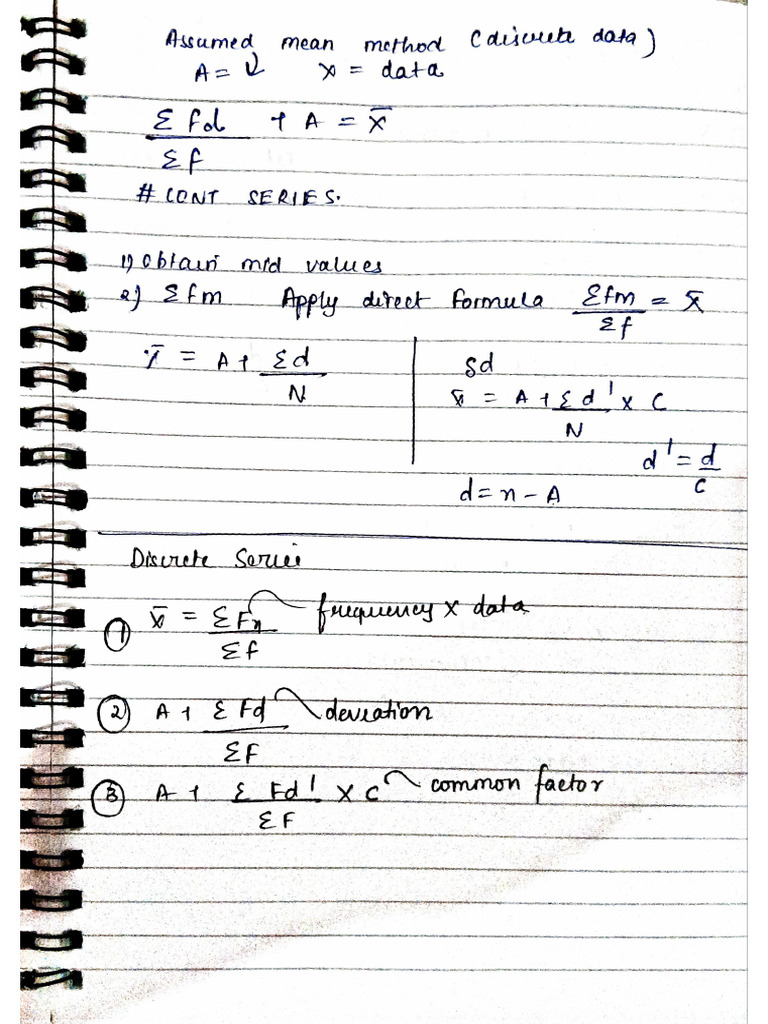 Assumed mean method (discrete data)
A = ↓ x = data
Σfd + A = x̄
Σf
# CONT SERIES.
1) Obtain mid values
2) Σfm Apply direct formula Σfm = x̄
Σf
x̄ = A + Σd
N
Sd
x̄ = A + Σd' x C
N
d' = d
C
d = n - A
Discrete Series
① x̄ = ΣFx frequency x data
Σf
② A + ΣFd deveation
ΣF
③ A + ΣFd' x C common factor
ΣF